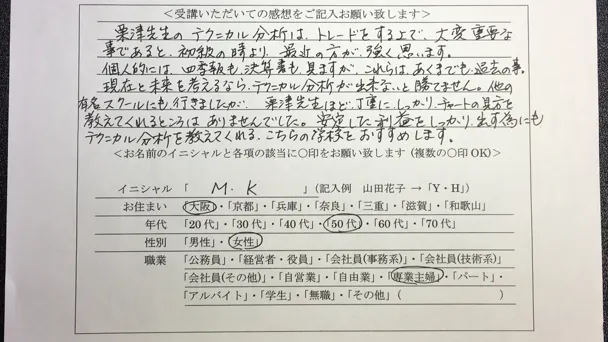 ＜受講いただいての感想をご記入お願い致します＞
粟津先生のテクニカル分析は、トレードをする上で、大変重要な
事であると、初級の時より、最近の方が強く思います。
個人的には、四季報も決算書も見ますが、これらは、あくまでも過去の事。
現在と未来を考えるなら、テクニカル分析が出来ないと勝てません。他の
有名スクールにも行きましたが、粟津先生ほど、丁重に、しっかり、チャートの見方を
教えてくれるところはありませんでした。安定した利益をしっかり出す為にも
テクニカル分析を教えてくれる、こちらの学校をおすすめします。
＜お名前のイニシャルと各項の該当に〇印をお願い致します（複数の〇印OK）＞
イニシャル「 M・K 」（記入例 山田花子 → 「Y・H」）
お住まい「大阪」・「京都」・「兵庫」・「奈良」・「三重」・「滋賀」・「和歌山」
年代「20代」・「30代」・「40代」・「50代」・「60代」・「70代」
性別「男性」・「女性」
職業「公務員」・「経営者・役員」・「会社員(事務系)」・「会社員(技術系)」
「会社員(その他)」・「自営業」・「自由業」・「専業主婦」・「パート」・
「アルバイト」・「学生」・「無職」・「その他」（ ）